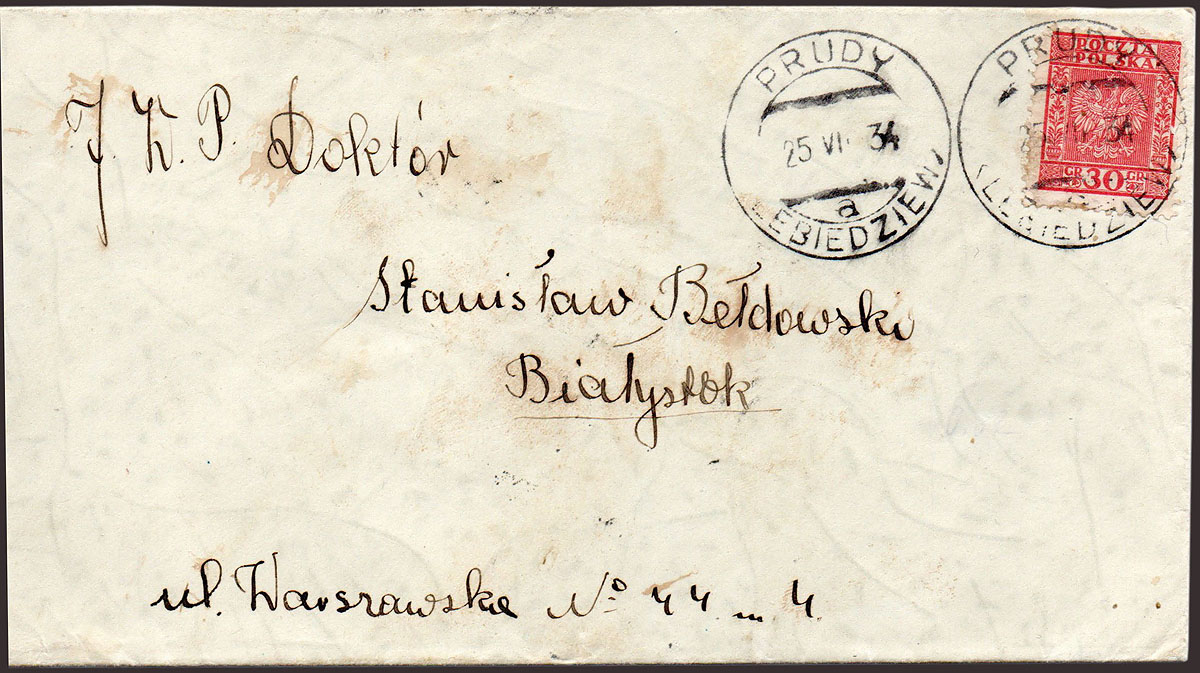 J. W. P. Doktór
Stanisław Bełdowski
Białystok
ul. Warszawska № 44 m 4.
PRUDY
25 VI 34
a
LEBIEDZIEW
PRUDY
34
POCZTA
POLSKA
GR 30 GR